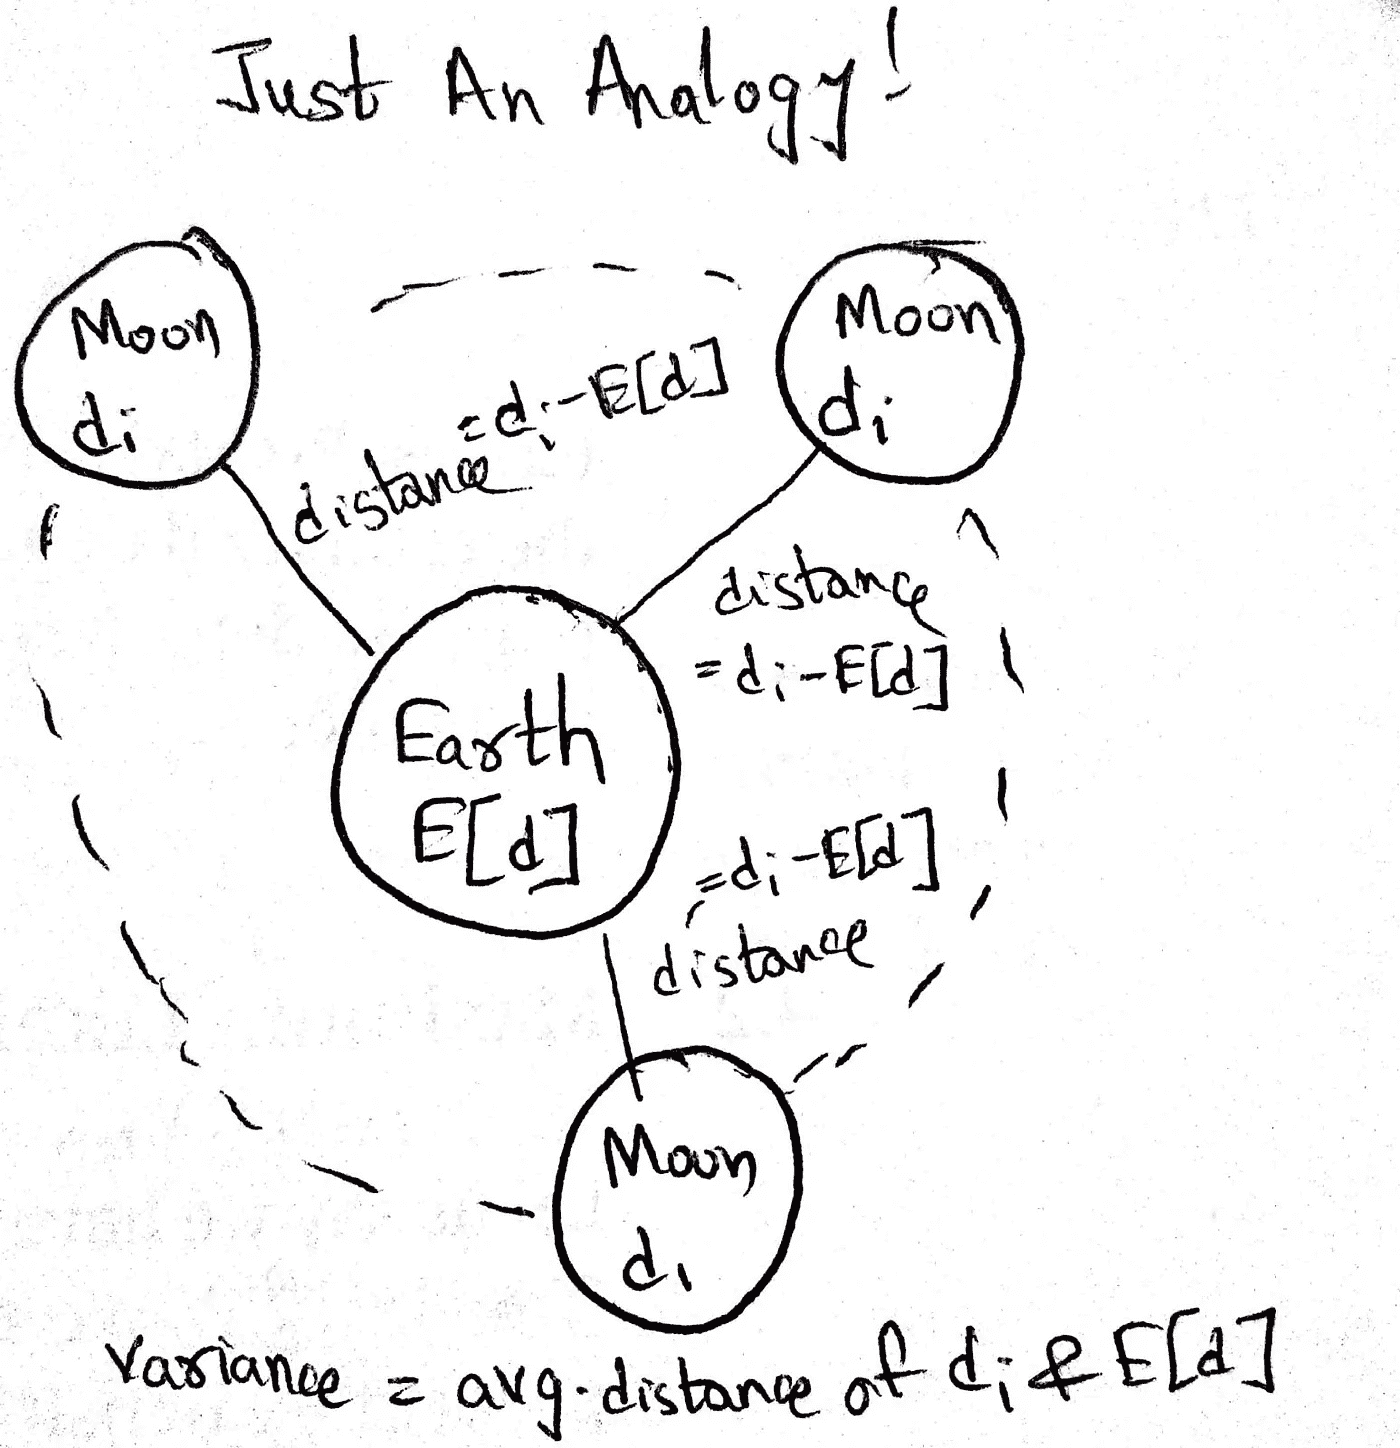 Just An Analogy!
Moon
di
Moon
di
distance = di - E[d]
distance
= di - E[d]
Earth
E[d]
= di - E[d]
distance
Moon
di
variance = avg. distance of di & E[d]